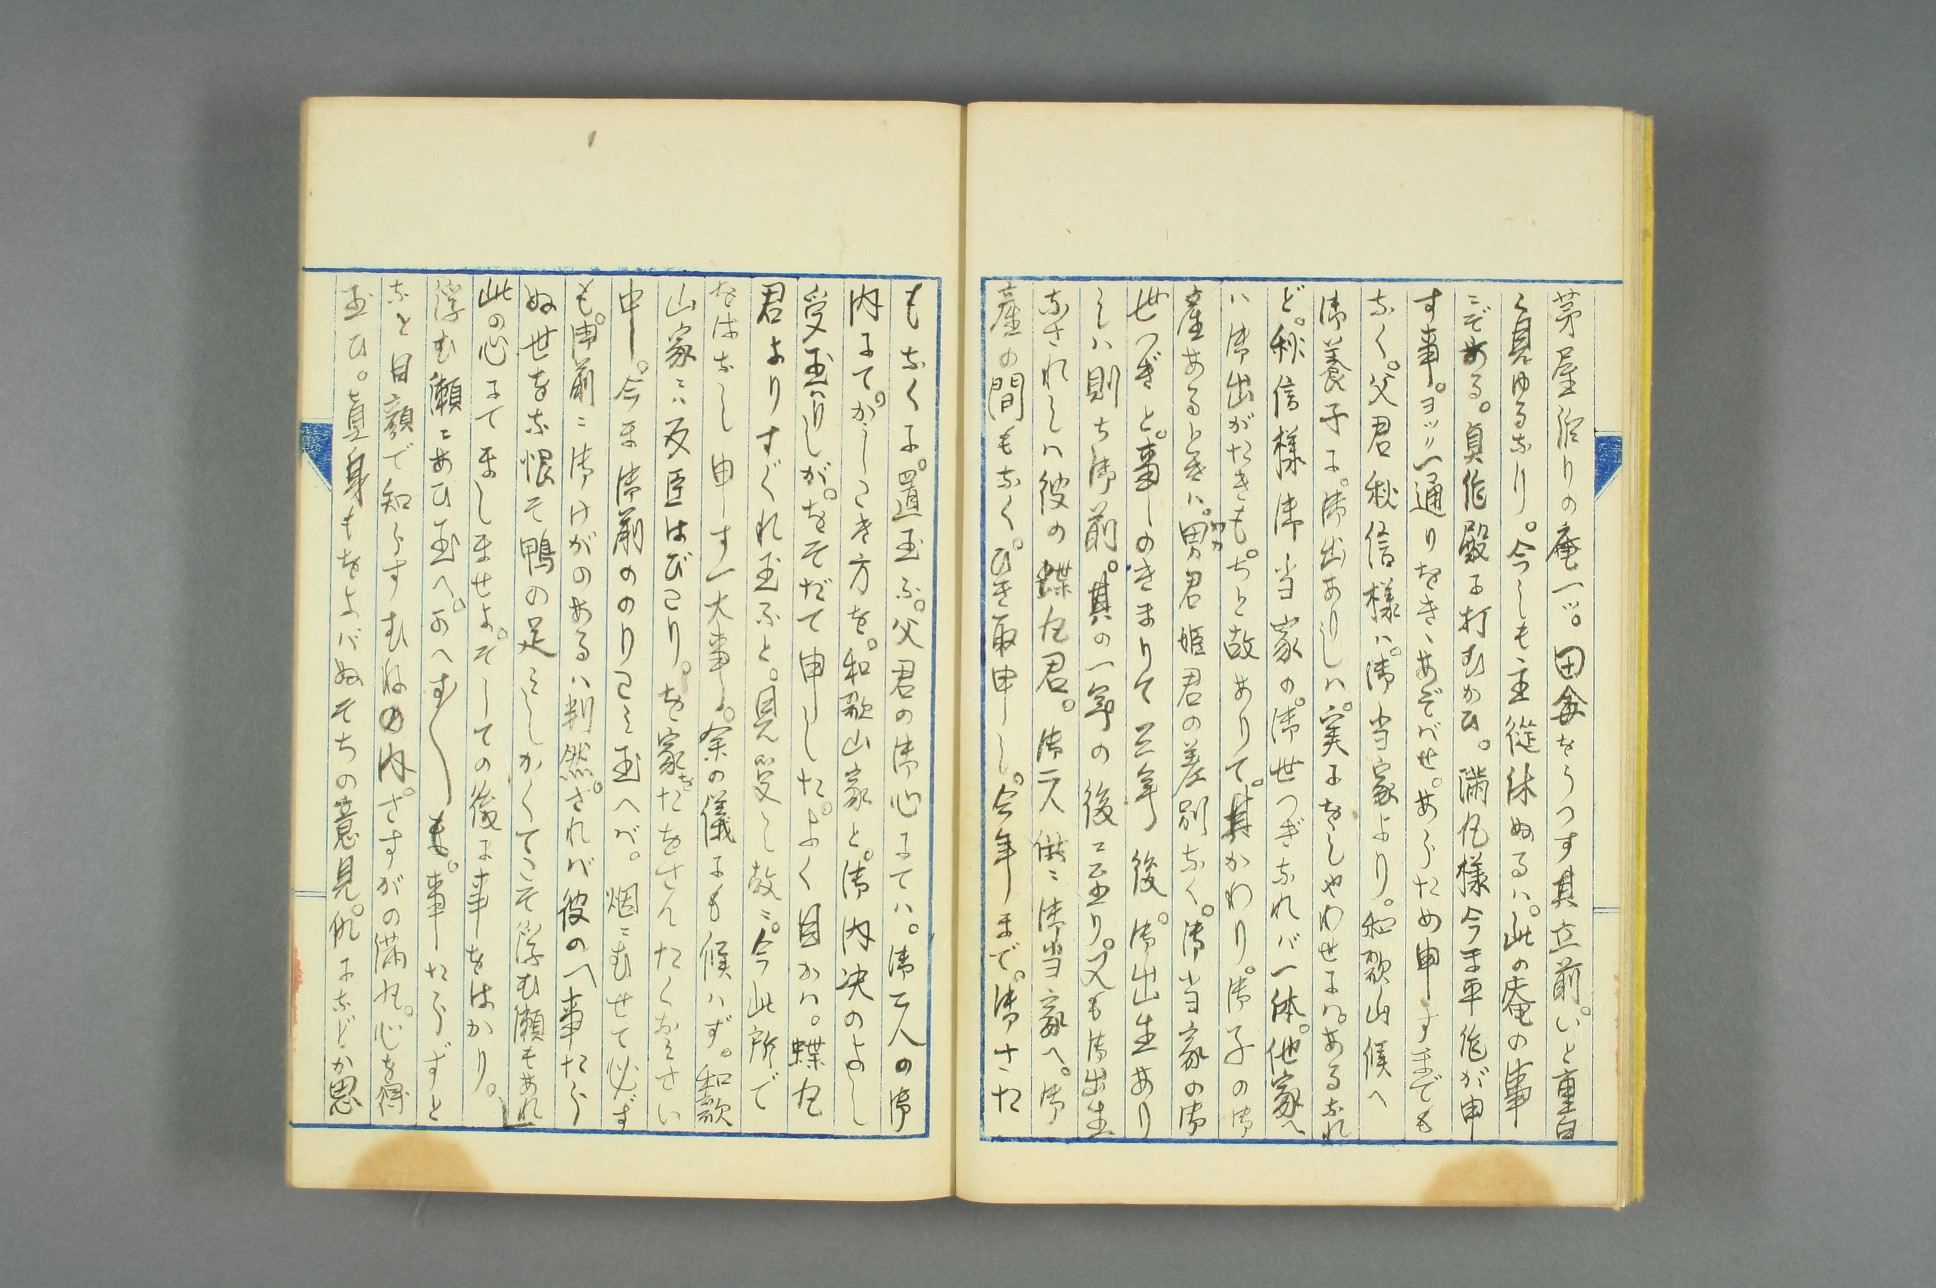 茅屋治りの庵一ツ。田舎をうつす其立前。いと重白
く見ゆるなり。今しも主従休ぬるハ。此の庵の事
ニぞある。眞作殿に打むかひ。満丸様今ま平作が申
す事。ヨッ一通りをきゝあそバせ。あらため申すまでも
なく。父君秋信様ハ。御当家より。和歌山候へ
御養子に。御出ありしハ。実にをしやわせに。あるなれ
ど。秋信様御当家の。御世つぎなれバ一体。他家へ
ハ御出がたきも。ちと故ありて。其かわり。御子の御
産あるときハ。男君姫君の差別なく。御当家の御
世つぎと。事しのきまりて三年後。御出生あり
しハ則ち御前。其の一年の後ニ至り。又も御出生
なされしハ彼の蝶丸君。御二人供ニ御当家へ。御
産の間もなく。ひき取申しし。今年まで。御さた
もなくに。置玉ふ。父君の御心にてハ。御二人の御
内にて。かしこき方を。和歌山家と。御内决のよし
受玉ハりしが。をそだて申しした。よく目かハ。蝶丸
君よりすぐれ玉ふと。見受し故ニ。今此所で
をはなし申す一大事。余の儀にも候ハず。和歌
山家ニハ反臣はびこり。を家をたをさんたくみさい
中。今ま御前ののりこミ玉へバ。烟ニむせて必ず
も。御前ニ御けがのあるハ判然。されバ彼のへ事たら
ぬ世をな恨そ鴨の足ミしかくてこそ浮む瀬もあれ
此の心にてましませよ。そしての後に事をはかり。
浮む瀬ニあひ玉へ。かへす〲も。事たらずと
なと目顔で知らすむねの内。さすがの満丸。心を得
玉ひ。眞身もをよバぬそちの意見。仇になどか思